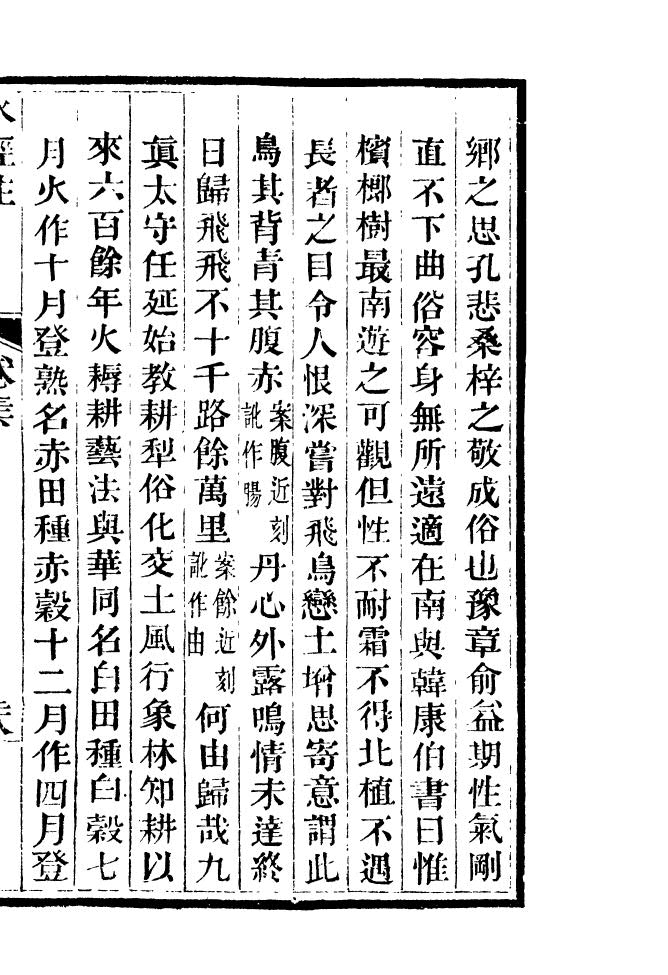 鄉之思孔悲桑梓之敬成俗也豫章俞益期性氣剛
直不下曲俗容身無所遠適在南與韓康伯書曰惟
檳榔樹最南遊之可觀但性不耐霜不得北植不遇
長者之目令人恨深嘗對飛鳥戀土增思寄意謂此
鳥其背青其腹赤案腹近刻訛作腸丹心外露鳴情未達終
日歸飛飛不十千路餘萬里案餘近刻訛作由何由歸哉九
眞太守任延始敎耕犁俗化交土風行象林知耕以
來六百餘年火耨耕藝法與華同名白田種白穀七
月火作十月登熟名赤田種赤穀十二月作四月登
水經注